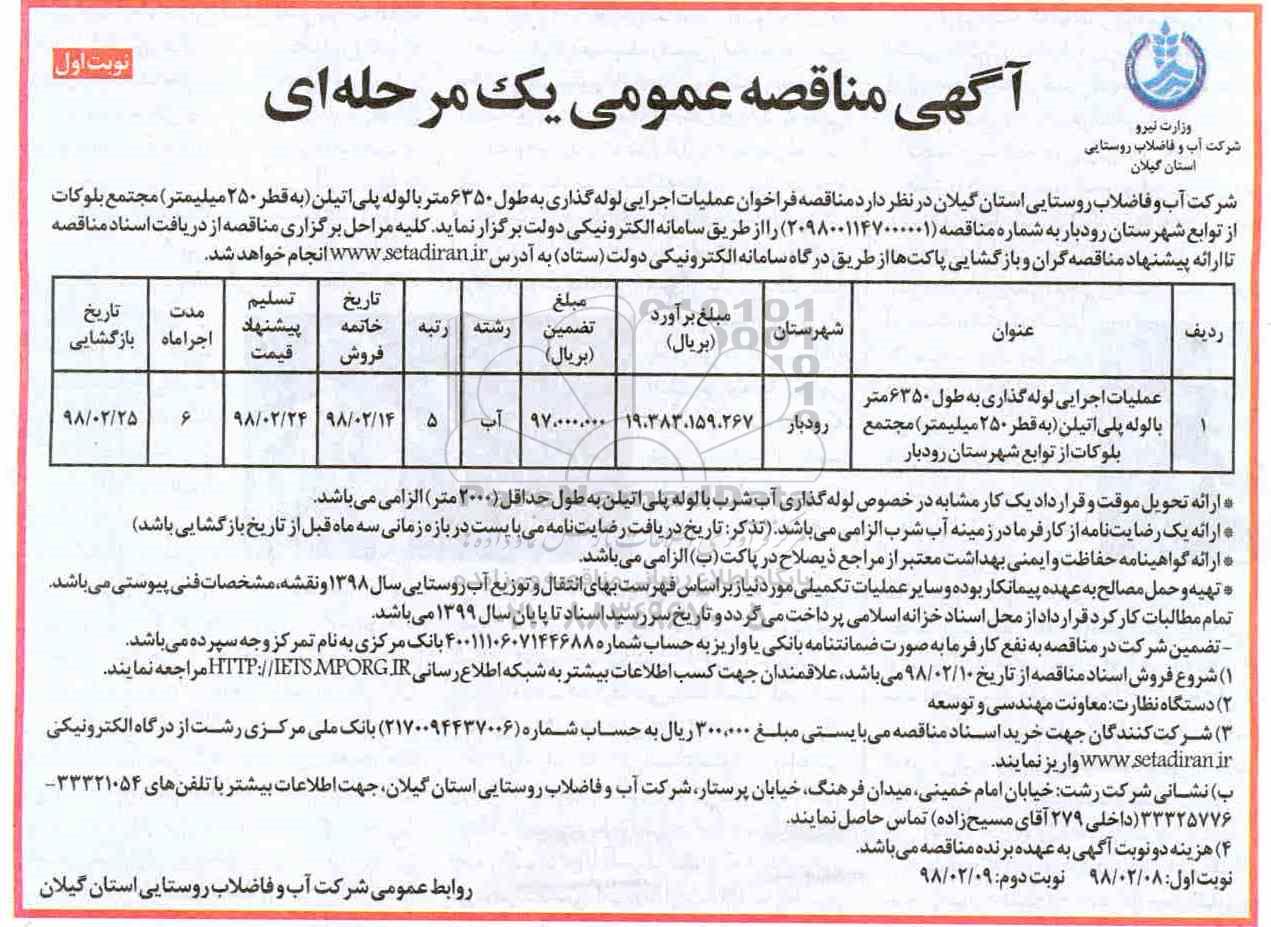 نوبت اول
آگهی مناقصه عمومی یک مرحله‌ای
وزارت نیرو
شرکت آب و فاضلاب روستایی
استان گیلان
شرکت آب و فاضلاب روستایی استان گیلان در نظر دارد مناقصه فراخوان عملیات اجرایی لوله گذاری به طول ۶۳۵۰ متر با لوله پلی اتیلن (به قطر ۲۵۰ میلیمتر) مجتمع بلوکات
از توابع شهرستان رودبار به شماره مناقصه (۲۰۹۸۰۰۱۱۴۷۰۰۰۰۰۱) را از طریق سامانه الکترونیکی دولت برگزار نماید. کلیه مراحل برگزاری مناقصه از دریافت اسناد مناقصه
تا ارائه پیشنهاد مناقصه گران و بازگشایی پاکت‌ها از طریق درگاه سامانه الکترونیکی دولت (ستاد) به آدرس www.setadiran.ir انجام خواهد شد.
ردیف عنوان شهرستان مبلغ برآورد (بریال) مبلغ تضمین (بریال) رشته رتبه تاریخ خاتمه فروش تسلیم پیشنهاد قیمت مدت اجرا ماه تاریخ بازگشایی
۱ عملیات اجرایی لوله گذاری به طول ۶۳۵۰ متر با لوله پلی اتیلن (به قطر ۲۵۰ میلیمتر) مجتمع بلوکات از توابع شهرستان رودبار رودبار ۱۹.۳۸۳.۱۵۹.۲۶۷ ۹۷۰.۰۰۰.۰۰۰ آب ۵ ۹۸/۰۲/۱۴ ۹۸/۰۲/۲۴ ۶ ۹۸/۰۲/۲۵
* ارائه تحویل موقت و قرارداد یک کار مشابه در خصوص لوله گذاری آب شرب با لوله پلی اتیلن به طول حداقل (۲۰۰۰ متر) الزامی می‌باشد.
* ارائه یک رضایت نامه از کارفرما در زمینه آب شرب الزامی می‌باشد. (تذکر: تاریخ دریافت رضایت نامه می بایست در بازه زمانی سه ماه قبل از تاریخ بازگشایی باشد)
* ارائه گواهینامه حفاظت و ایمنی بهداشت معتبر از مراجع ذیصلاح در پاکت (ب) الزامی می‌باشد.
* تهیه و حمل مصالح به عهده پیمانکار بوده و سایر عملیات تکمیلی مورد نیاز بر اساس فهرست بهای انتقال و توزیع آب روستایی سال ۱۳۹۸ و نقشه، مشخصات فنی پیوستی می‌باشد.
تمام مطالبات کارکرد قرارداد از محل اسناد خزانه اسلامی پرداخت می‌گردد و تاریخ سررسید اسناد تا پایان سال ۱۳۹۹ می‌باشد.
- تضمین شرکت در مناقصه به نفع کارفرما به صورت ضمانتنامه بانکی یا واریز به حساب شماره ۴۰۰۱۱۱۰۶۰۷۱۴۴۶۸۸ بانک مرکزی به نام تمرکز وجه سپرده می‌باشد.
۱) شروع فروش اسناد مناقصه از تاریخ ۹۸/۰۲/۱۰ می‌باشد، علاقمندان جهت کسب اطلاعات بیشتر به شبکه اطلاع رسانی HTTP://IETS.MPORG.IR مراجعه نمایند.
۲) دستگاه نظارت: معاونت مهندسی و توسعه
۳) شرکت کنندگان جهت خرید اسناد مناقصه می بایستی مبلغ ۳۰۰،۰۰۰ ریال به حساب شماره (۲۱۷۰۰۹۴۴۳۷۰۰۶) بانک ملی مرکزی رشت از درگاه الکترونیکی
www.setadiran.ir واریز نمایند.
ب) نشانی شرکت رشت: خیابان امام خمینی، میدان فرهنگ، خیابان پرستار، شرکت آب و فاضلاب روستایی استان گیلان، جهت اطلاعات بیشتر با تلفن‌های ۳۳۳۲۱۰۵۴-
۳۳۳۲۵۷۷۶ (داخلی ۲۷۹ آقای مسیح زاده) تماس حاصل نمایند.
۴) هزینه دو نوبت آگهی به عهده برنده مناقصه می‌باشد.
نوبت اول: ۹۸/۰۲/۰۸ نوبت دوم: ۹۸/۰۲/۰۹
روابط عمومی شرکت آب و فاضلاب روستایی استان گیلان